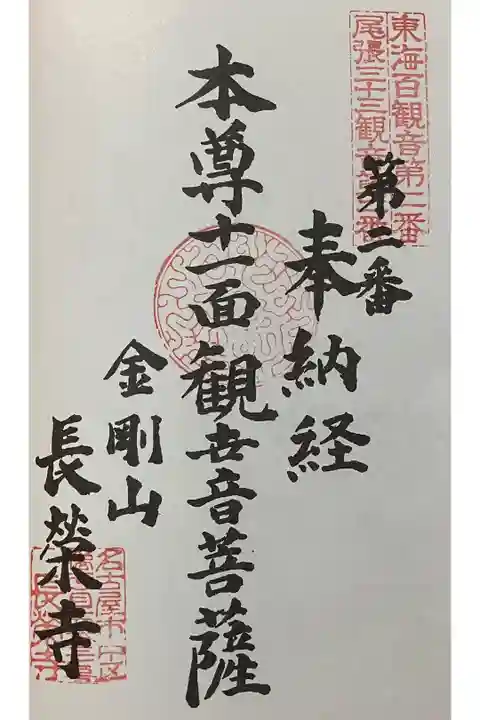 東海百観音第二番
尾張三十三観音第二番
第二番
奉納経
本尊十一面観世音菩薩
金剛山
長榮寺
名古屋市中区